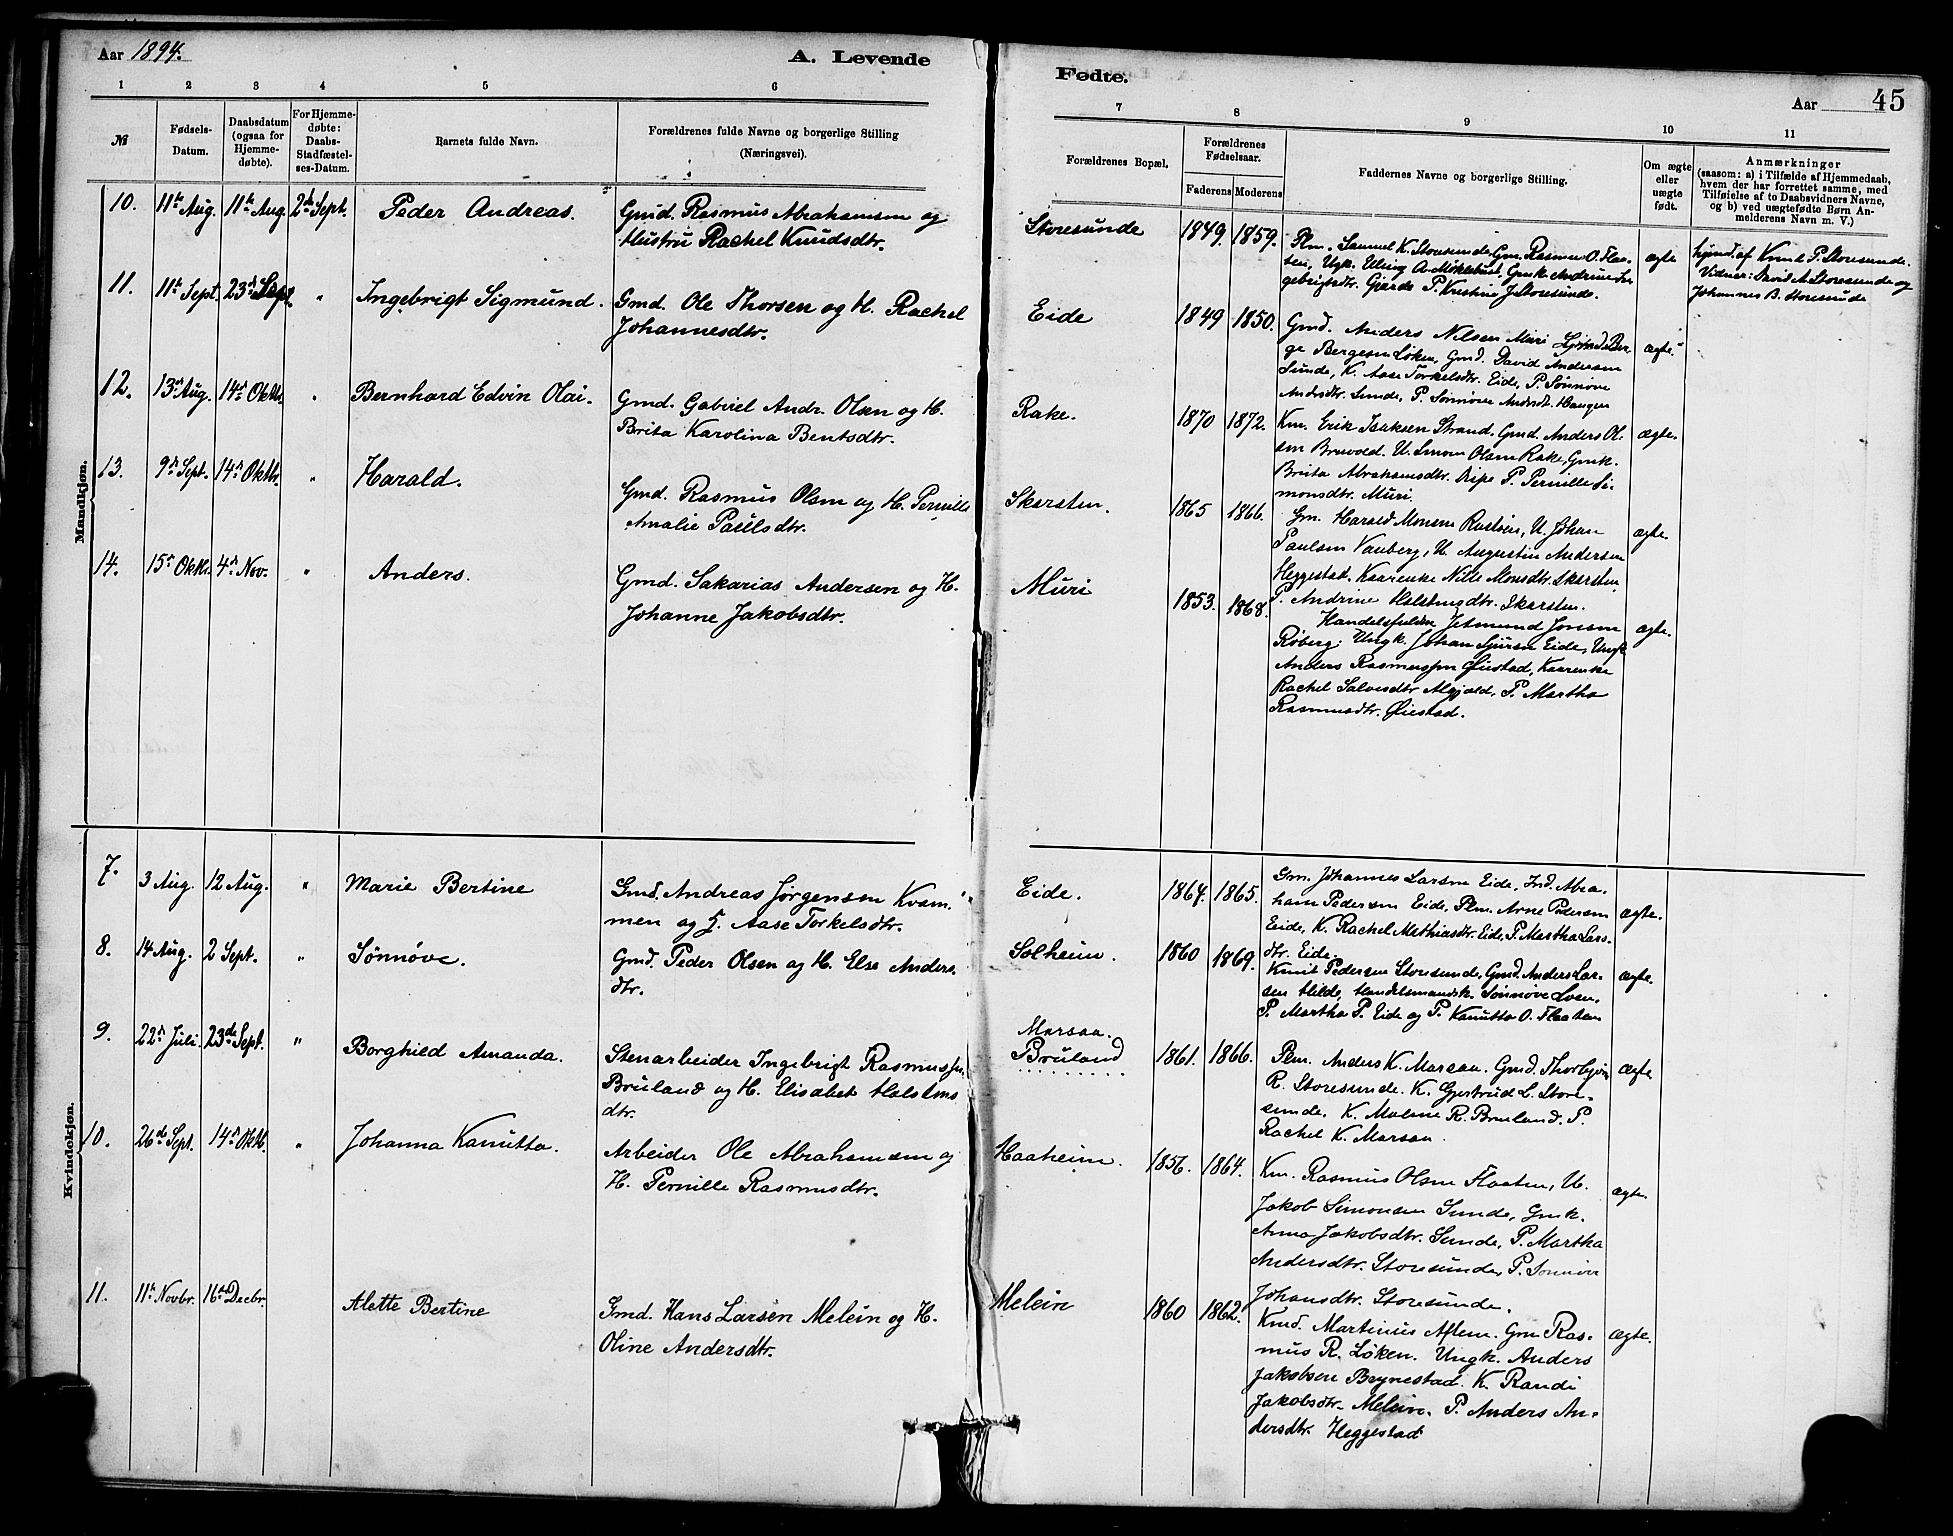 Aar 1894.
A. Levende
Fødte.
Aar
45
1 2 3 4 5 6
7 8 9 10 11
№
Fødsels-
Datum.
Daabsdatum
(ogsaa for
Hjemme-
døbte).
For Hjemme-
døbte:
Daabs-
Stadfæstel-
ses-Datum.
Barnets fulde Navn.
Forældrenes fulde Navne og borgerlige Stilling
(Næringsvei).
Forældrenes Bopæl.
Forældrenes
Fødselsaar.
Faderens Moderens
Faddernes Navne og borgerlige Stilling.
Om ægte
eller
uægte
født.
Anmærkninger
(saasom: a) i Tilfælde af Hjemmedaab,
hvem der har forrettet samme, med
Tilføielse af to Daabsvidners Navne,
og b) ved uægtefødte Børn An-
melderens Navn m. V.)
Mandkjøn.
10. 11te Aug. 11te Aug. 2den Sept. Peder Andreas.
Gmd. Rasmus Abrahamsen og
Hustru Rachel Knudsdtr.
Storesunde 1849. 1859.
Plm. Samuel K. Storesunde, Gm. Rasmus O. Flaa-
ten, Ugk. Elling A. Myklebust, Gmk. Andrine In-
gebrigtsdtr. Gjerde P. Kristine J. Storesunde.
ægte
hjmd. af Knut P. Storesunde.
Vidner: David A. Storesunde og
Johannes B. Storesunde
11. 11te Sept. 23de Sept. " Ingebrigt Sigmund.
Gmd. Ole Thorsen og H. Rachel
Johannesdtr.
Eide 1849 1850.
Gmd. Anders Nilsen Muri Gmd. Ber-
ge Bergesen Løken, Gmd. David Andersen
Sunde, K. Aase Torkelsdtr. Eide, P. Sønnøve
Andrsdtr. Sunde, P. Sønnøve Andrsdt. Haugen
ægte.
12. 13de Aug. 14de Oktb. " Bernhard Edvin Olai.
Gmd. Gabriel Andr. Olsen og H.
Brita Karolina Bentsdtr.
Rake. 1870 1872.
Km. Erik Isaksen Strand. Gmd. Anders Ol-
sen Bruvold. U. Simon Olsen Rake, Gmk.
Brita Abrahamsdtr. Ripe P. Pernille Si-
monsdtr. Muri.
ægte.
13. 9de Sept. 14de Oktb. " Harald.
Gmd. Rasmus Olsen og H. Pernille
Amalie Paulsdtr.
Skarsten. 1865 1866.
Gm. Harald Monsen Rustøen, U. Johan
Paulsen Vanberg, U. Augustin Andersen
Heggestad. Kaarenke Nille Monsdtr. Skarsten,
P. Andrine Holstensdtr. Skarsten.
ægte.
14. 15de Oktb. 4de Nov. " Anders.
Gmd. Sakarias Andersen og H.
Johanne Jakobsdtr.
Muri 1853. 1868.
Handelsfuldm. Jetmund Jonsen
Røberg. Ungk. Johan Sjursen Eide, Ungk.
Anders Rasmussen Øiestad, Kaarenke
Rachel Salvesdtr. Algjeld, P. Martha
Rasmusdtr. Øiestad.
ægte.
Kvindekjøn.
7. 3 Aug. 12 Aug. " Marie Bertine
Gmd. Andreas Jørgensen Kvam-
men og H. Aase Torkelsdtr.
Eide. 1864. 1865.
Gm. Johannes Larsen Eide, Ind. Abra-
ham Pedersen Eide, Plm. Arne Pedersen
Eide, K. Rachel Mathiasdtr. Eide, P. Martha Lars-
dtr. Eide.
ægte.
8. 14 Aug. 2 Sept. " Sønnøve.
Gmd. Peder Olsen og H. Else Anders-
dtr.
Solheim. 1860 1869.
Knut Pedersen Storesunde, Gmd. Anders Lar-
sen Hilde, Handelsmandsk. Sønnøve Loen,
P. Martha P. Eide og P. Kanutta O. Flaaten
ægte.
9. 22de Juli. 23de Sept. " Borghild Amanda.
Stenarbeider Ingebrigt Rasmussen
Bruland og H. Elisabet Holstens-
dtr.
Marsaa.
Bruland 1861. 1866.
Plm. Anders K. Marsaa. Gmd. Thorbjørn
R. Storesunde. K. Gjertrud L. Store-
sunde. K. Malene R. Bruland. P.
Rachel K. Marsaa.
ægte
10. 26de Sept. 14de Oktb. " Johanna Kanutta.
Arbeider Ole Abrahamsen og
H. Pernille Rasmusdtr.
Haaheim. 1856. 1864.
Km. Rasmus Olsen Flaaten, U.
Jakob Simonsen Sunde, Gmk.
Anna Jakobsdtr. Sunde, P. Martha
Andersdtr. Storesunde, P. Sønnøve
Johansdtr. Storesunde.
ægte.
11. 11te Novbr. 16de Decbr. Alette Bertine
Gmd. Hans Larsen Melein og H.
Oline Andersdtr.
Melein 1860 1862.
Kmd. Martinius Aflem. Gm. Ras-
mus R. Løken. Ungk. Anders
Jakobsen Brynestad. K. Randi
Jakobsdtr. Melein. P. Anders An-
dersdtr. Heggestad
ægte.